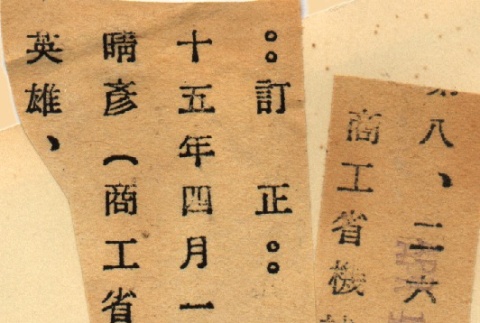 訂正
十五年四月一
晴彦(商工省
英雄、
八、二六
商工省機